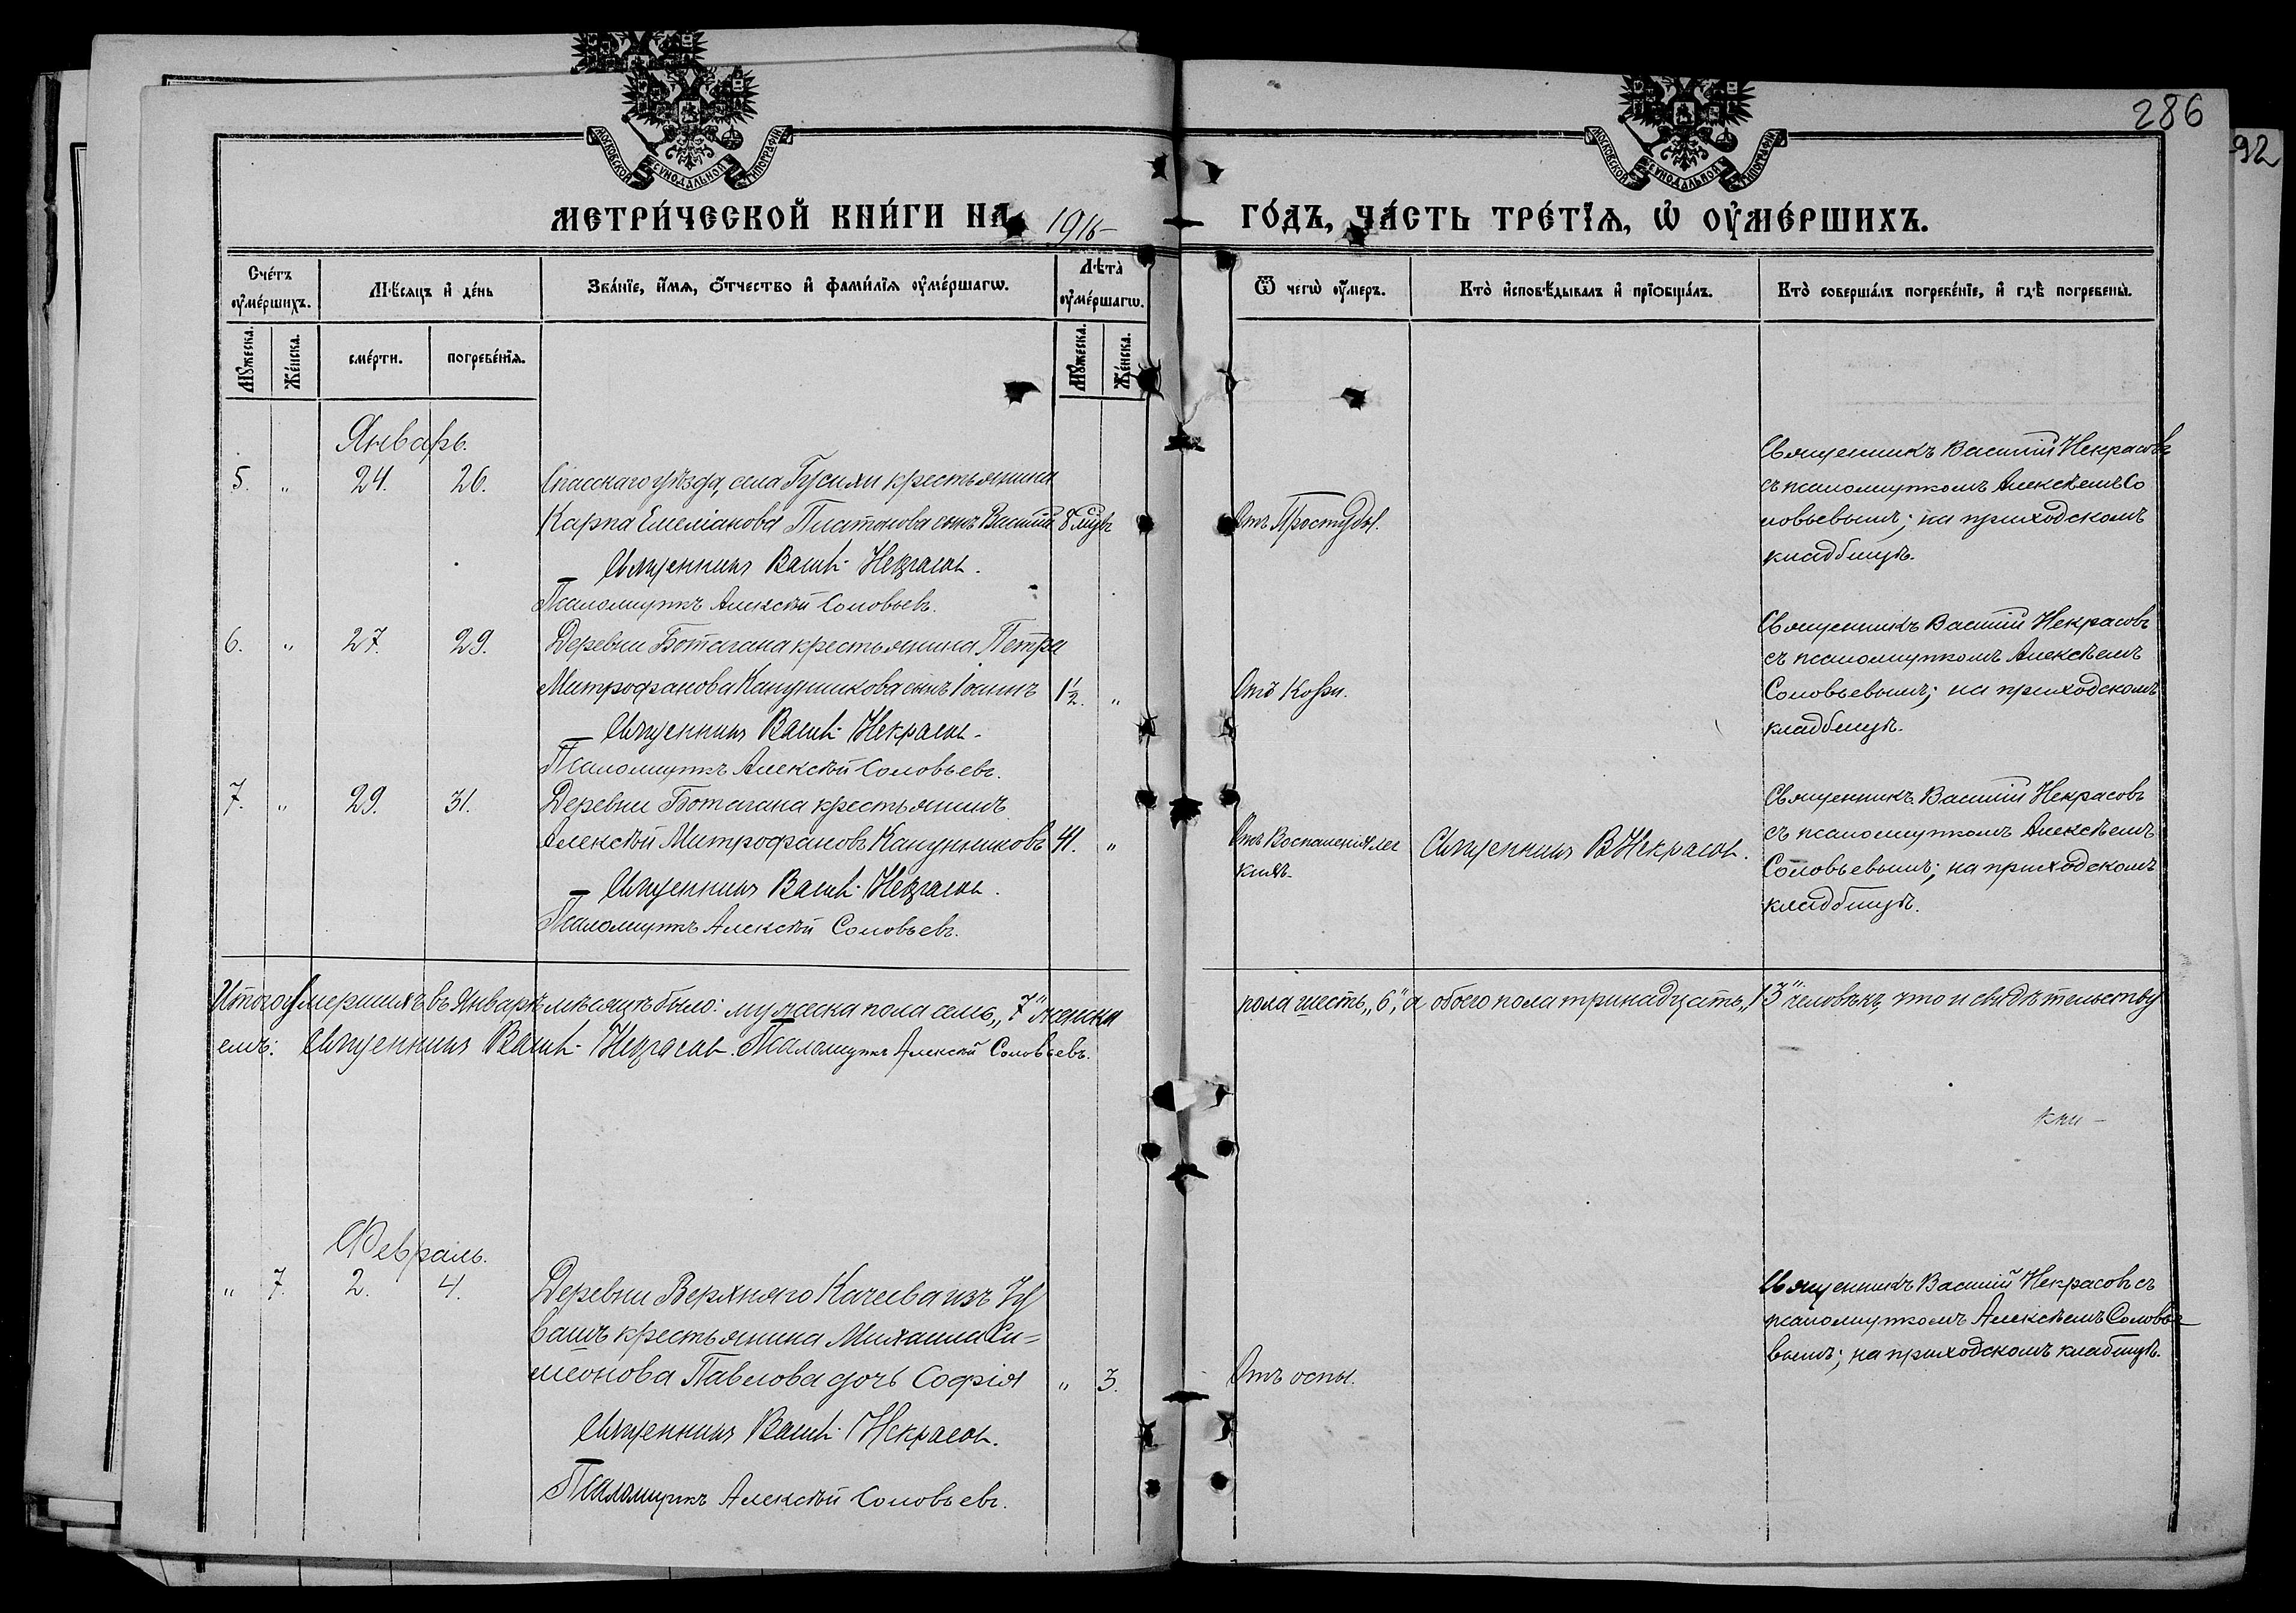 286
92
МОСКОВСКОЙ СѴНОДАЛЬНОЙ ТИПОГРАФІИ
МОСКОВСКОЙ СѴНОДАЛЬНОЙ ТИПОГРАФІИ
МЕТРИ́ЧЕСКОЙ КНИ́ГИ НА 1916 ГО́ДЪ, ЧА́СТЬ ТРЕ́ТІѦ, Ѡ҆ ОУ҆МЕ́РШИХЪ.
Сче́тъ оу҆ме́ршихъ.
Мѣ́сяцъ и҆ де́нь
Зва́нїе, и҆́мѧ, ѻ҆́тчество и҆ фами́лїѧ оу҆ме́ршагѡ.
Лѣта̀ оу҆ме́ршагѡ.
Ѿ чегѡ̀ оу҆́меръ.
Кто̀ и҆сповѣ́дывалъ и҆ прїѡбща́лъ.
Кто̀ соверша́лъ погребе́нїе, и҆ гдѣ̀ погребены̀.
Мꙋ́жеска.
Же́нска.
сме́рти.
погребе́нїѧ.
Мꙋ́жеска.
Же́нска.
Январь.
5. " 24. 26. Спасскаго уѣзда, села Гусихи крестьянина
Карпа Емеліанова Платонова сынъ Василій 8 мѣсц
Священникъ Васил. Некрасовъ.
Псаломщикъ Алексѣй Соловьевъ.
Отъ Простуды.
Священникъ Василій Некрасовъ
съ псаломщикомъ Алексѣемъ Со
ловьевымъ; на приходскомъ
кладбищѣ.
6. " 27. 29. Деревни Ботагана крестьянина Петра
Митрофанова Канунникова сынъ Іоаннъ 1½. "
Священникъ Васил. Некрасовъ.
Псаломщикъ Алексѣй Соловьевъ.
Отъ Кори.
Священникъ Василій Некрасовъ
съ псаломщикомъ Алексѣемъ
Соловьевымъ; на приходскомъ
кладбищѣ.
7. " 29. 31. Деревни Ботагана крестьянинъ
Алексѣй Митрофановъ Канунниковъ 41. "
Священникъ Васил. Некрасовъ.
Псаломщикъ Алексѣй Соловьевъ.
Отъ Воспаленія лег
кихъ.
Священникъ В Некрасовъ.
Священникъ Василій Некрасовъ
съ псаломщикомъ Алексѣемъ
Соловьевымъ; на приходскомъ
кладбищѣ.
Итого умершихъ въ Январѣ мѣсяцѣ было: мужеска пола семь „7" женска
пола шесть „6", а обоего пола тринадцать „13" человѣкъ, что и свидѣтельству
емъ: Священникъ Васил. Некрасовъ. Псаломщикъ Алексѣй Соловьевъ.
Февраль.
" 7. 2. 4. Деревни Верхняго Качеева изъ Чу
вашъ крестьянина Михаила Си=
меонова Павлова дочь Софія " 3.
Священникъ Васил. Некрасовъ.
Псаломщикъ Алексѣй Соловьевъ.
Отъ оспы.
Священникъ Василій Некрасовъ съ
псаломщикомъ Алексѣемъ Соловье
вымъ; на приходскомъ кладбищѣ.